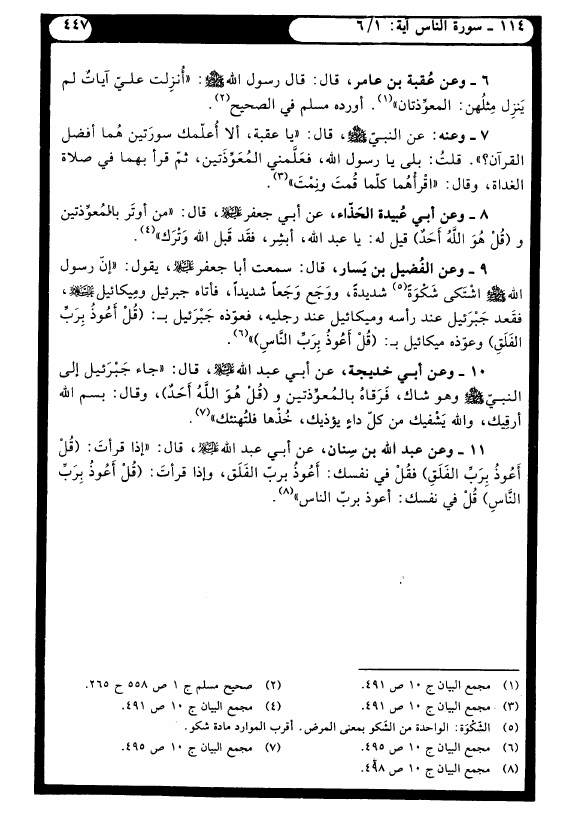 ١١٤ ـ سورة الناس آية: ٦/١
٤٤٧
٦ ـ وعن عُقبة بن عامر، قال: قال رسول الله ﷺ: «أُنزِلت عليّ آياتٌ لم
يَنزِل مِثلُهن: المعوِّذتان»(١). أورده مسلم في الصحيح(٢).
٧ ـ وعنه: عن النبيّ ﷺ، قال: «يا عقبة، ألا أُعلّمك سورَتين هُما أفضل
القرآن؟». قلتُ: بلى يا رسول الله، فعَلَّمني المُعَوِّذَتين، ثمّ قرأ بهما في صلاة
الغداة، وقال: «اقْرأهُما كلّما قُمتَ ونِمْتَ»(٣).
٨ ـ وعن أبي عُبيدة الحَذّاء، عن أبي جعفر عليه السلام، قال: «من أوتَر بالمُعوِّذتين
و (قُلْ هُوَ اللَّهُ أَحَدٌ) قيل له: يا عبد الله، أبشِر، فقَد قَبل الله وَتْرك»(٤).
٩ ـ وعن الفُضيل بن يَسار، قال: سمعت أبا جعفر عليه السلام، يقول: «إنّ رسول
الله ﷺ اشْتكى شَكْوَةً(٥) شديدةً، ووَجَع وَجَعاً شديداً، فأتاه جبرئيل ومِيكائيل عليهما السلام،
فقَعد جَبْرَئيل عند رأسه وميكائيل عند رجليه، فعوّذه جَبْرَئيل بـ: (قُلْ أَعُوذُ بِرَبِّ
الفَلَقِ) وعوّذه ميكائيل بـ: (قُلْ أَعُوذُ بِرَبِّ النَّاسِ)»(٦).
١٠ ـ وعن أبي خديجة، عن أبي عبد الله عليه السلام، قال: «جاء جَبْرَئيل إلى
النبيّ ﷺ وهو شاك، فَرَقاهُ بالمُعوِّذتين و (قُلْ هُوَ اللَّهُ أَحَدٌ)، وقال: بسم الله
أرقِيك، والله يَشْفيك من كلّ داءٍ يؤذيك، خُذْها فلتُهنئك»(٧).
١١ ـ وعن عبد الله بن سِنان، عن أبي عبد الله عليه السلام، قال: «إذا قرأتَ: (قُلْ
أَعُوذُ بِرَبِّ الفَلَقِ) فقُلْ في نفسك: أَعُوذُ بربّ الفَلَق، وإذا قرأتَ: (قُلْ أَعُوذُ بِرَبِّ
النَّاسِ) قُلْ في نفسك: أعوذ بربّ الناس»(٨).
(١) مجمع البيان ج ١٠ ص ٤٩١.
(٢) صحيح مسلم ج ١ ص ٥٥٨ ح ٢٦٥.
(٣) مجمع البيان ج ١٠ ص ٤٩١.
(٤) مجمع البيان ج ١٠ ص ٤٩١.
(٥) الشّكْوَة: الواحدة من الشَكو بمعنى المرض. أقرب الموارد مادة شكو.
(٦) مجمع البيان ج ١٠ ص ٤٩٥.
(٧) مجمع البيان ج ١٠ ص ٤٩٥.
(٨) مجمع البيان ج ١٠ ص ٤٩٨.